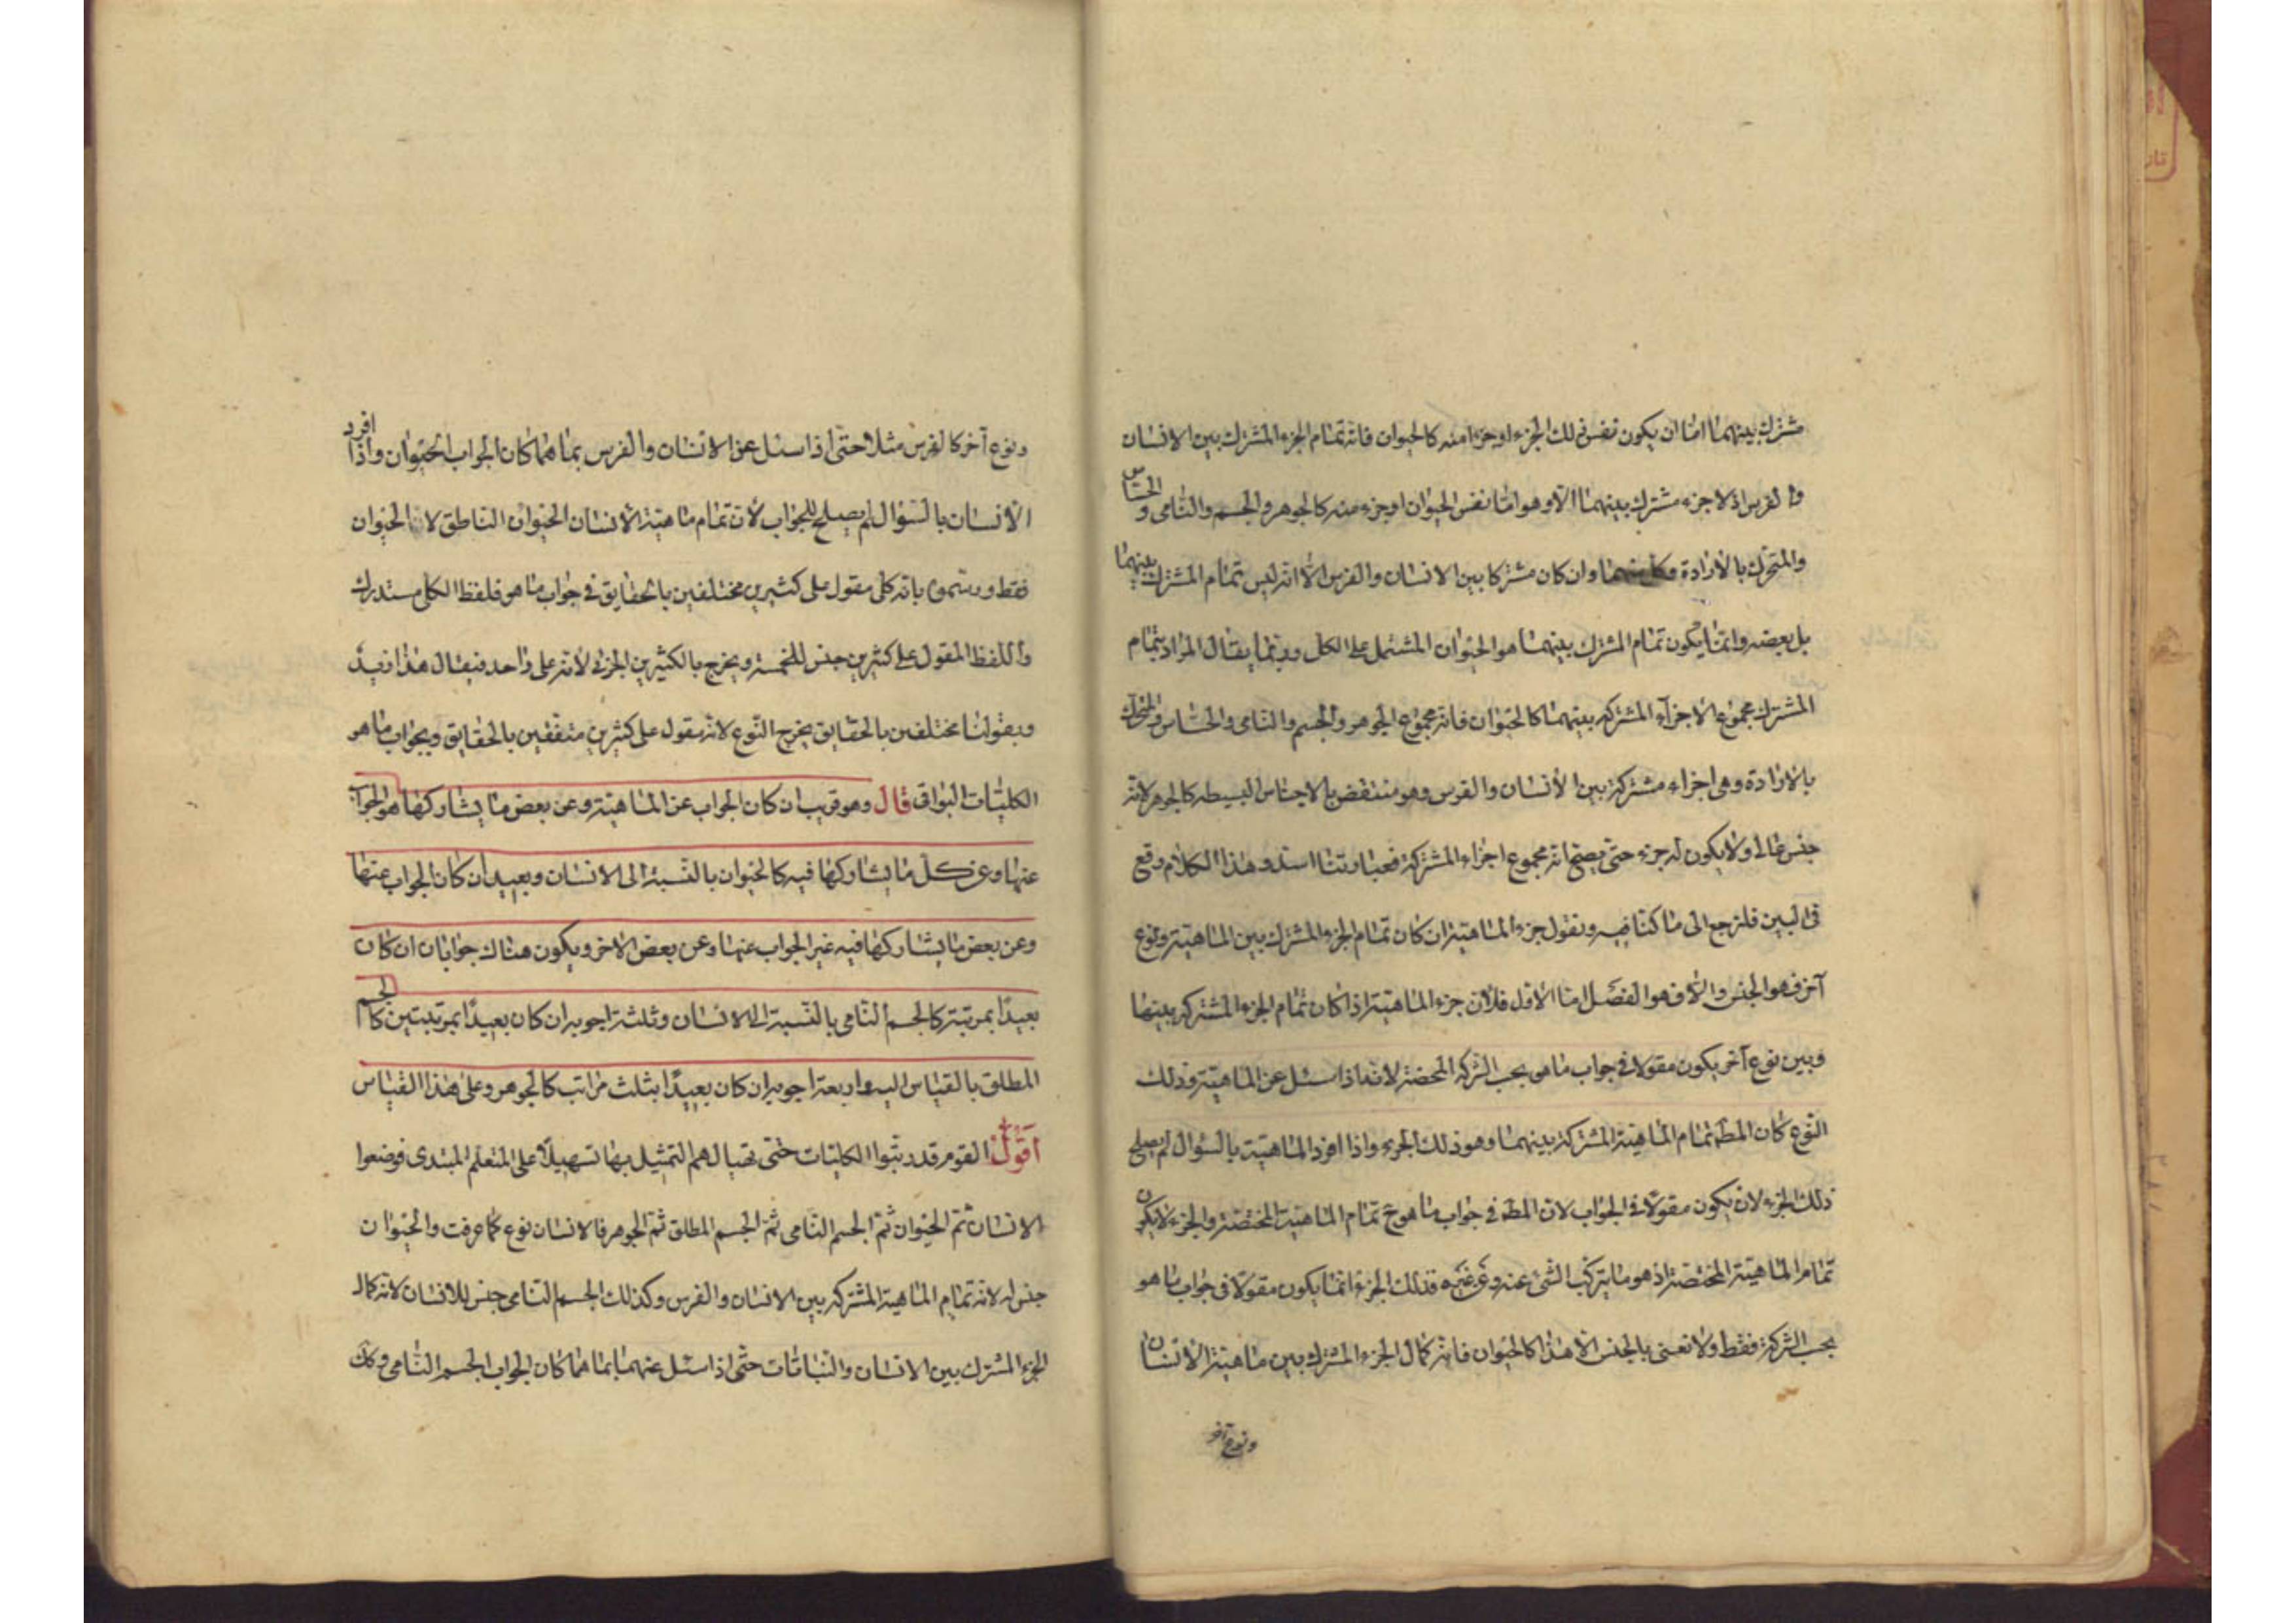 مشترك بينهما اما ان يكون نفس ذلك الجزء او جزءا منه كالحيوان فانه تمام الجزء المشترك بين الانسان
والفرس اذ لا جزء مشترك بينهما الا وهو اما نفس الحيوان او جزء منه كالجوهر والجسم والنامى والحساس
والمتحرك بالارادة وكل منهما وان كان مشتركا بين الانسان والفرس الا انه ليس تمام المشترك بينهما
بل بعضه وانما يكون تمام المشترك بينهما هو الحيوان المشتمل على الكل وربما يقال المراد بتمام
المشترك مجموع الاجزاء المشتركه بينهما كالحيوان فانه مجموع الجوهر والجسم والنامى والحساس والمتحرك
بالارادة وهى اجزاء مشتركة بين الانسان والفرس وهو منتقض بالاجناس البسيطه كالجوهر لانه
جنس عالى ولا يكون له جزء حتى يصح انه مجموع اجزاء المشتركة فعبارتنا اسد وهذا الكلام وقع
فى البين فلنرجع الى ما كنا فيه ونقول جزء الماهية ان كان تمام الجزء المشترك بين الماهية ونوع
آخر فهو الجنس والا فهو الفصل اما الاول فلان جزء الماهية اذا كان تمام الجزء المشتركه بينها
وبين نوع آخر يكون مقولا فى جواب ما هو بحسب الشركه المحضة لانه اذا سئل عن الماهية وذلك
النوع كان المط تمام الماهية المشتركة بينهما وهو ذلك الجزء واذا افرد الماهية بالسؤال لم يصلح
ذلك الجزء لان يكون مقولا فى الجواب لان المط فى جواب ما هو ح تمام الماهية المختصة والجزء لا يكون
تمام الماهية المختصة اذ هو ما يتركب الشئ عنه وعن غيره فذلك الجزء انما يكون مقولا فى جواب ما هو
بحسب الشركة فقط ولا نعنى بالجنس الا هذا كالحيوان فانه كمال الجزء المشترك بين ماهية الانسان
ونوع آخر
ونوع آخر كالفرس مثلا حتى اذا سئل عن الانسان والفرس بما هما كان الجواب الحيوان واذا افرد
الانسان بالسؤال لم يصلح للجواب لان تمام ماهية الانسان الحيوان الناطق لا الحيوان
فقط ورسموه بانه كلى مقول على كثيرين مختلفين بالحقايق فى جواب ما هو فلفظ الكلى مستدرك
واللفظ المقول على كثيرين جنس للخمسة ويخرج بالكثيرين الجزئى لانه على واحد فيقال هذا زيد
وبقولنا مختلفين بالحقايق يخرج النوع لانه مقول على كثيرين متفقين بالحقايق وبجواب ما هو
الكليات البواقى قال وهو قريب ان كان الجواب عن الماهية وعن بعض ما يشاركها هو الجواب
عنها وعن كل ما يشاركها فيه كالحيوان بالنسبة الى الانسان وبعيد ان كان الجواب عنها
وعن بعض ما يشاركها فيه غير الجواب عنها وعن بعض الاخر ويكون هناك جوابان ان كان
بعيدا بمرتبة كالجسم النامى بالنسبة الى الانسان وثلثة اجوبه ان كان بعيدا بمرتبتين كالجسم
المطلق بالقياس اليه واربعة اجوبه ان كان بعيدا بثلث مراتب كالجوهر وعلى هذا القياس
اقول القوم قد رتبوا الكليات حتى تهيا لهم التمثيل بها تسهيلا على المتعلم المبتدى فوضعوا
الانسان ثم الحيوان ثم الجسم النامى ثم الجسم المطلق ثم الجوهر فالانسان نوع كما عرفت والحيوان
جنس له لانه تمام الماهية المشتركه بين الانسان والفرس وكذلك الجسم النامى جنس للانسان لانه كمال
الجزء المشترك بين الانسان والنباتات حتى اذا سئل عنهما بما هما كان الجواب الجسم النامى وكك